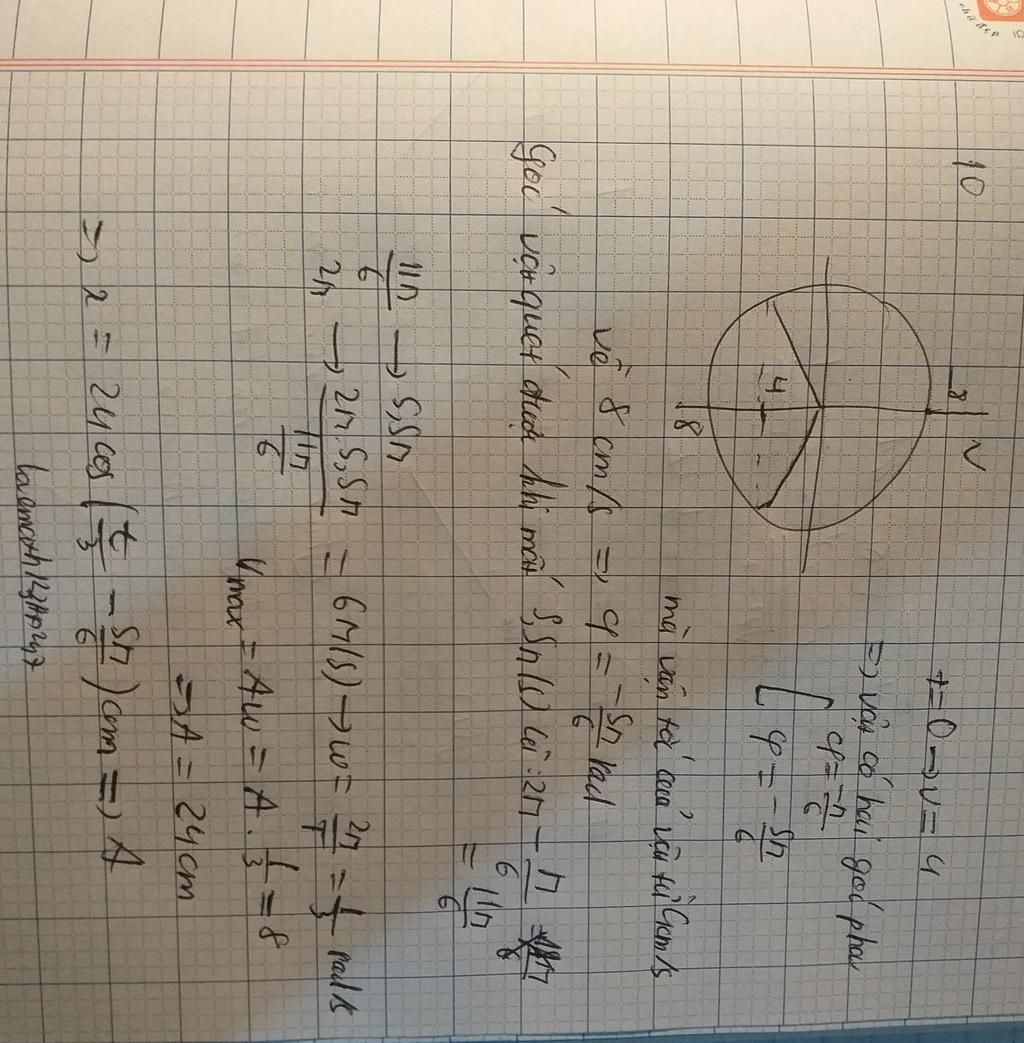 10
t=0 → v = 4
v
8
⇒ vật có hai góc pha
[ φ = -π/6
φ = -5π/6
4
8
mà vận tốc của vật từ 4cm/s
về 8 cm/s ⇒ φ = -5π/6 rad
Góc vật quét được khi mất 5,5π(s) là: 2π - π/6
= 11π/6
11π/6 → 5,5π
2π → 2π.5,5π / 11π/6 = 6π(s) → ω = 2π/T = 1/3 rad/s
Vmax = Aω = A . 1/3 = 8
⇒ A = 24 cm
⇒ x = 24 cos (t/3 - 5π/6) cm ⇒ A